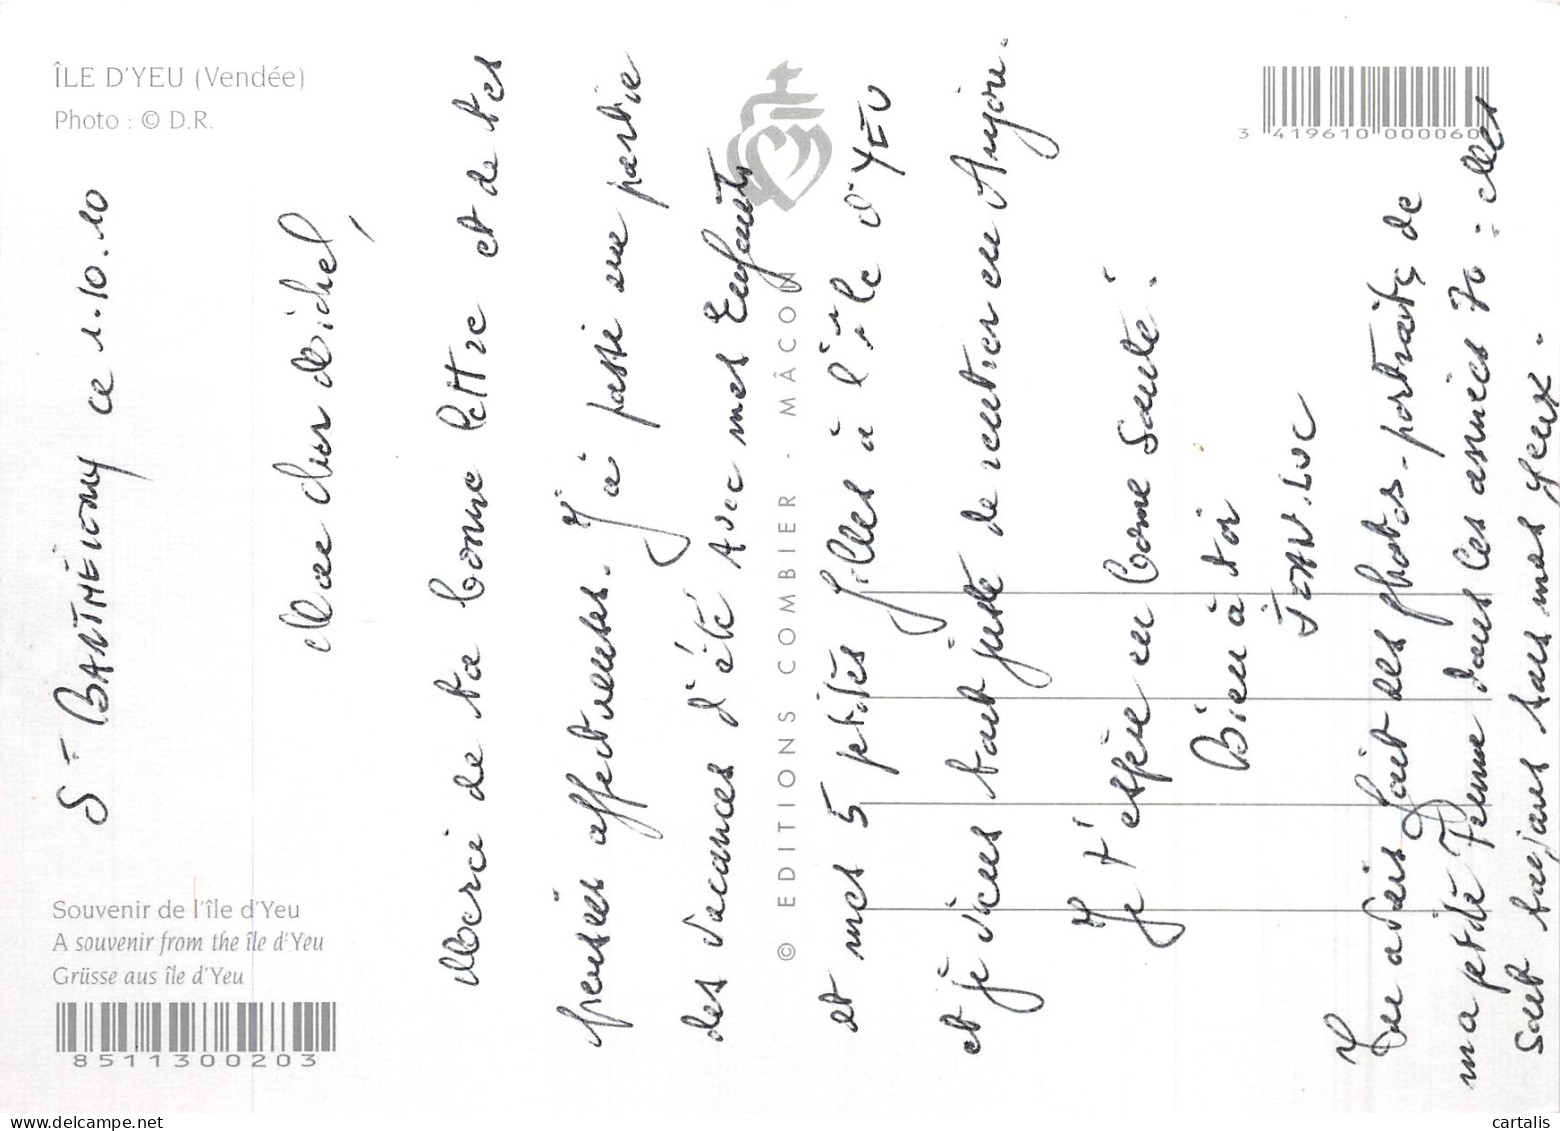 ÎLE D'YEU (Vendée)
Photo : © D.R.
3 419610 000060
Souvenir de l'île d'Yeu
A souvenir from the île d'Yeu
Grüsse aus île d'Yeu
8511300203
© EDITIONS COMBIER - MÂCON
St BARTHÉLEMY ce 1.10.10
Mon cher Michel,
Merci de ta bonne lettre et de tes
pensées affectueuses. J'ai passé une partie
des vacances d'été avec mes Enfants
et mes 5 petites filles à l'île d'YEU
et je viens tout juste de rentrer en Anjou.
Je t'espère en bonne santé.
Bien à toi
JEAN.LUC
Tu avais fait des photos-portraits de
ma petite femme dans les années 70 : elles
sont toujours sous mes yeux.
cartalis